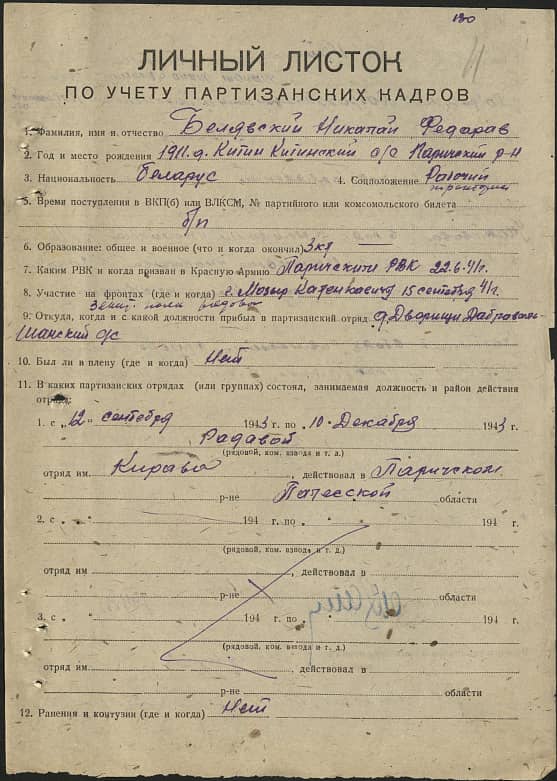 130
11
ЛИЧНЫЙ ЛИСТОК
ПО УЧЕТУ ПАРТИЗАНСКИХ КАДРОВ
1. Фамилия, имя и отчество Белявский Никалай Федарав
2. Год и место рождения 1911. д. Китин Китинский с/с Паричский р-н
3. Национальность беларус 4. Соцположение Рабочий
5. Время поступления в ВКП(б) или ВЛКСМ, № партийного или комсомольского билета
б/п
6. Образование: общее и военное (что и когда окончил) 3 кл —
7. Каким РВК и когда призван в Красную Армию Паричским РВК 22.6.41г.
8. Участие на фронтах (где и когда) г. Мозыр 15 сентебря 41г.
9. Откуда, когда и с какой должности прибыл в партизанский отряд д. Дворищи
с/с
10. Был ли в плену (где и когда) Нет
11. В каких партизанских отрядах (или группах) состоял, занимаемая должность и район действия
отряда:
1. с „12" сентебря 1943 г. по 10. Декабря 1943 г.
Радавой
(рядовой, ком. взвода и т. д.)
отряд им. Кирава, действовал в Паричском
р-не Палесской области
2. с „ " 194 г. по „ " 194 г.
(рядовой, ком. взвода и т. д.)
отряд им , действовал в
р-не области
3. с „ " 194 г. по „ " 194 г.
(рядовой, ком. взвода и т. д.)
отряд им , действовал в
р-не области
12. Ранения и контузии (где и когда) Нет